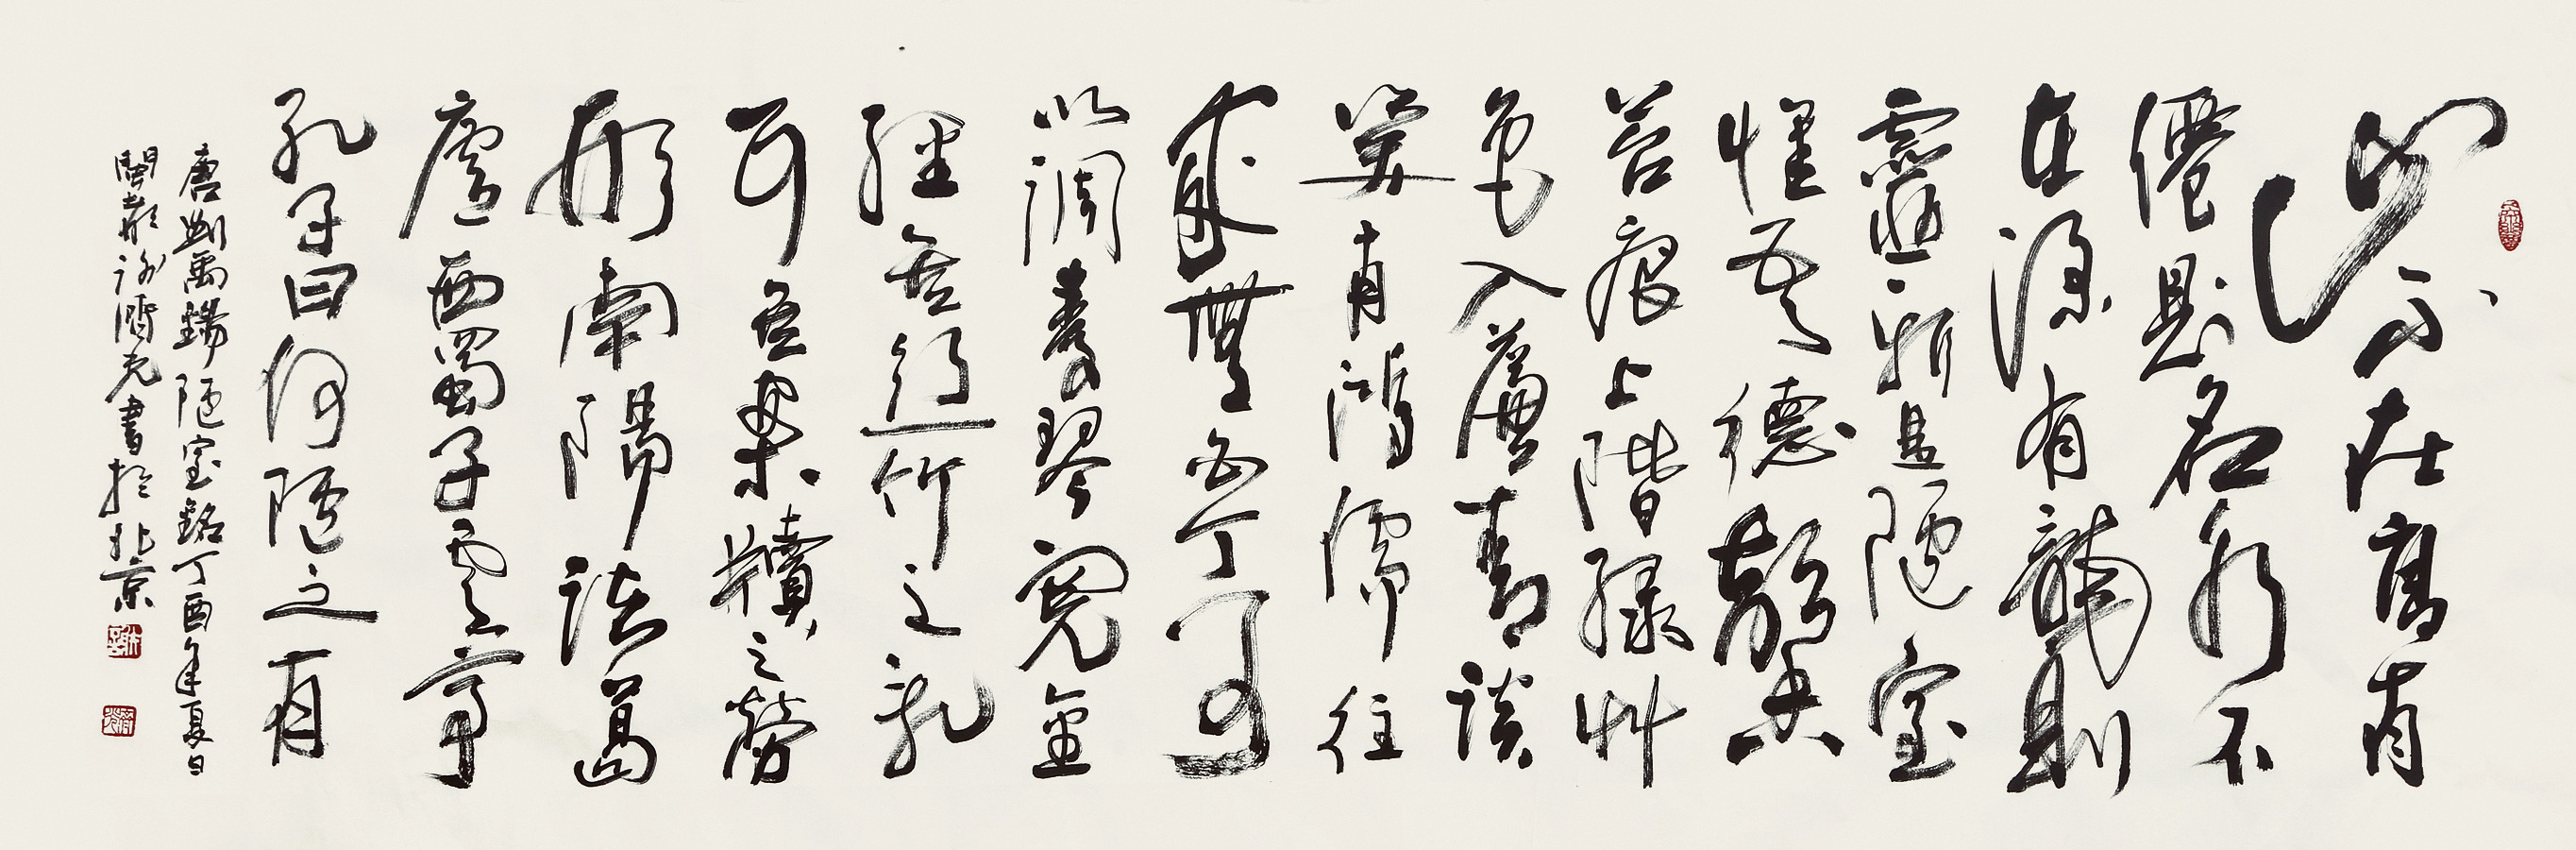 山不在高有
僊則名水不
在深有龍則
靈斯是陋室
惟吾德馨
苔痕上階綠艸
色入簾青談
笑有鴻儒往
來無白丁可
以調素琴閱金
經無絲竹之亂
耳無案牘之勞
形南陽諸葛
廬西蜀子雲亭
孔子曰何陋之有
唐劉禹錫陋室銘丁酉年夏日
閩都謝光書於北京